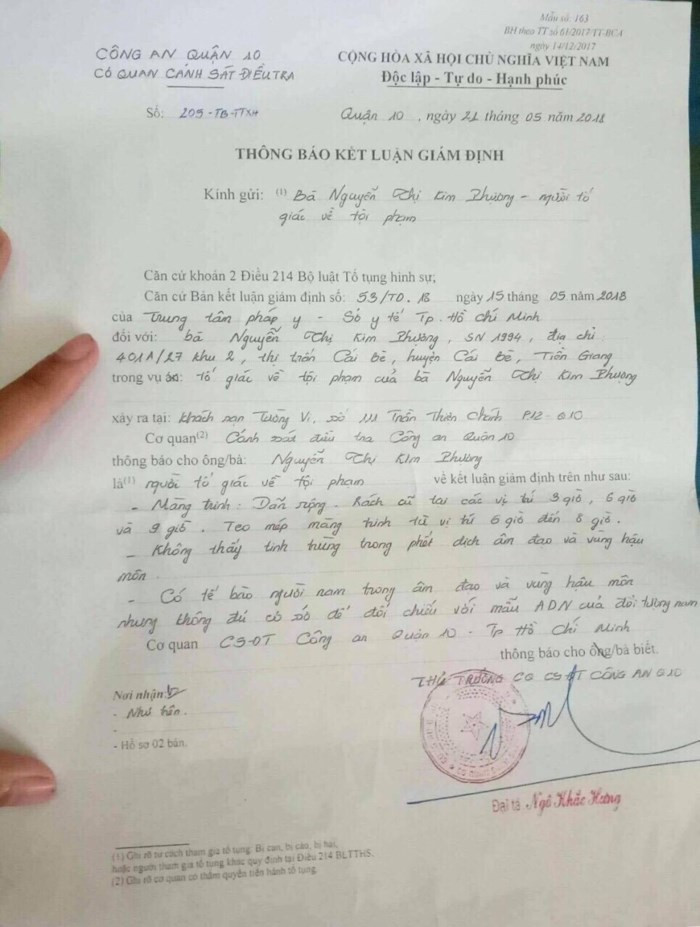 Mẫu số: 163
BH theo TT số 61/2017/TT-BCA
ngày 14/12/2017
CÔNG AN QUẬN 10
CƠ QUAN CẢNH SÁT ĐIỀU TRA
CỘNG HÒA XÃ HỘI CHỦ NGHĨA VIỆT NAM
Độc lập - Tự do - Hạnh phúc
Số: 205-TB-TTXH
Quận 10, ngày 21 tháng 05 năm 2018
THÔNG BÁO KẾT LUẬN GIÁM ĐỊNH
Kính gửi: (1) Bà Nguyễn Thị Kim Phượng - người tố
giác về tội phạm
Căn cứ khoản 2 Điều 214 Bộ luật Tố tụng hình sự;
Căn cứ Bản kết luận giám định số: 53/TD.18 ngày 15 tháng 05 năm 2018
của Trung tâm pháp y - Sở y tế Tp. Hồ Chí Minh
đối với: bà Nguyễn Thị Kim Phượng, SN 1994, địa chỉ
401A/27 khu 2, thị trấn Cái Bè, huyện Cái Bè, Tiền Giang
trong vụ tố giác về tội phạm của bà Nguyễn Thị Kim Phượng
xảy ra tại: khách sạn Tường Vi, số 111 Trần Thiện Chánh P12-Q10
Cơ quan(2) Cảnh sát điều tra Công an Quận 10
thông báo cho ông/bà: Nguyễn Thị Kim Phượng
là(1) người tố giác về tội phạm về kết luận giám định trên như sau:
- Màng trinh: Dãn rộng. Rách cũ tại các vị trí 3 giờ, 6 giờ
và 9 giờ. Teo mép màng trinh từ vị trí 6 giờ đến 8 giờ.
- Không thấy tinh trùng trong phết dịch âm đạo và vùng hậu
môn.
- Có tế bào người nam trong âm đạo và vùng hậu môn
nhưng không đủ cơ sở để đối chiếu với mẫu ADN của đối tượng nam
Cơ quan CS-ĐT Công an Quận 10 - Tp Hồ Chí Minh
thông báo cho ông/bà biết.
THỦ TRƯỞNG CQ CSĐT CÔNG AN Q10
Nơi nhận:
- Như trên.
-
- Hồ sơ 02 bản.
Đại tá Ngô Khắc Hưng
(1) Ghi rõ tư cách tham gia tố tụng: Bị can, bị cáo, bị hại,
hoặc người tham gia tố tụng khác quy định tại Điều 214 BLTTHS.
(2) Ghi rõ cơ quan có thẩm quyền tiến hành tố tụng.